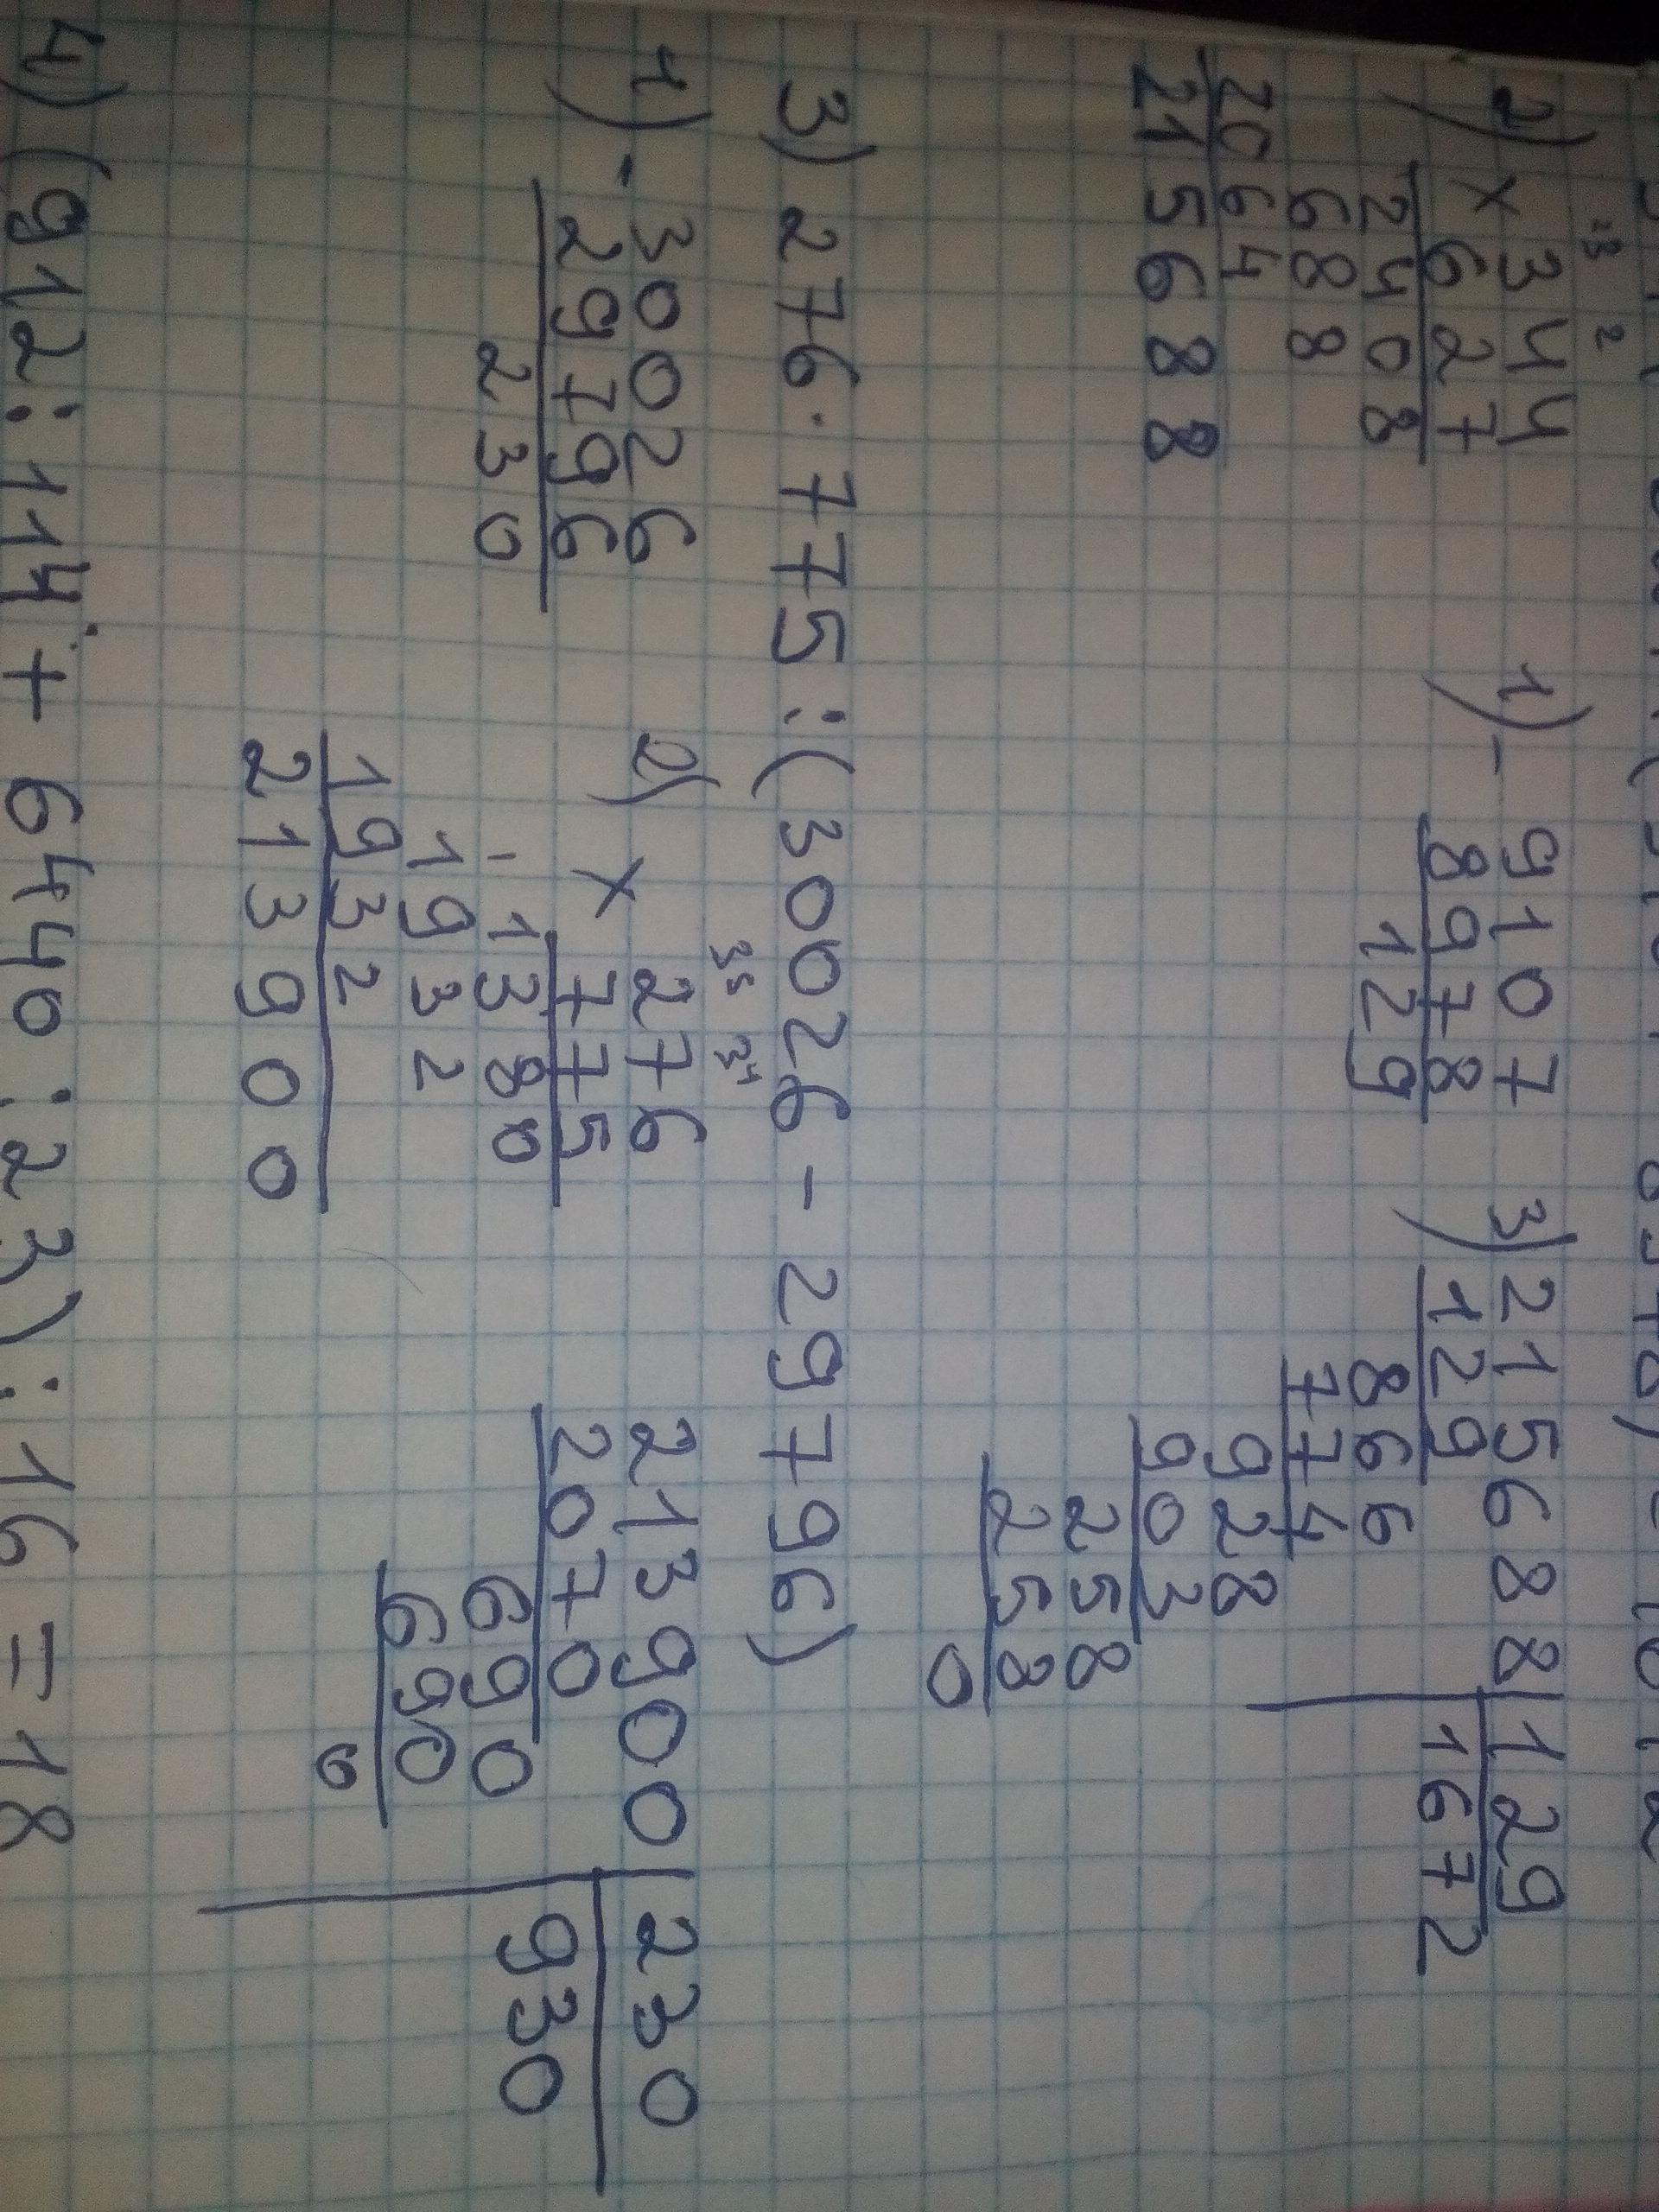 2) 3 2
× 344
627
2408
688
2064
215688
1) - 9107
8978
129
3) 215688 | 129
129 | 1672
866
774
928
903
258
258
0
3) 276 · 775 : (30026 - 29796)
1) - 30026
29796
230
2)
× 276
775
1380
1932
1932
213900
213900 | 230
2070 | 930
690
690
0
4) (912 : 114 + 6440 : 23) : 16 = 18